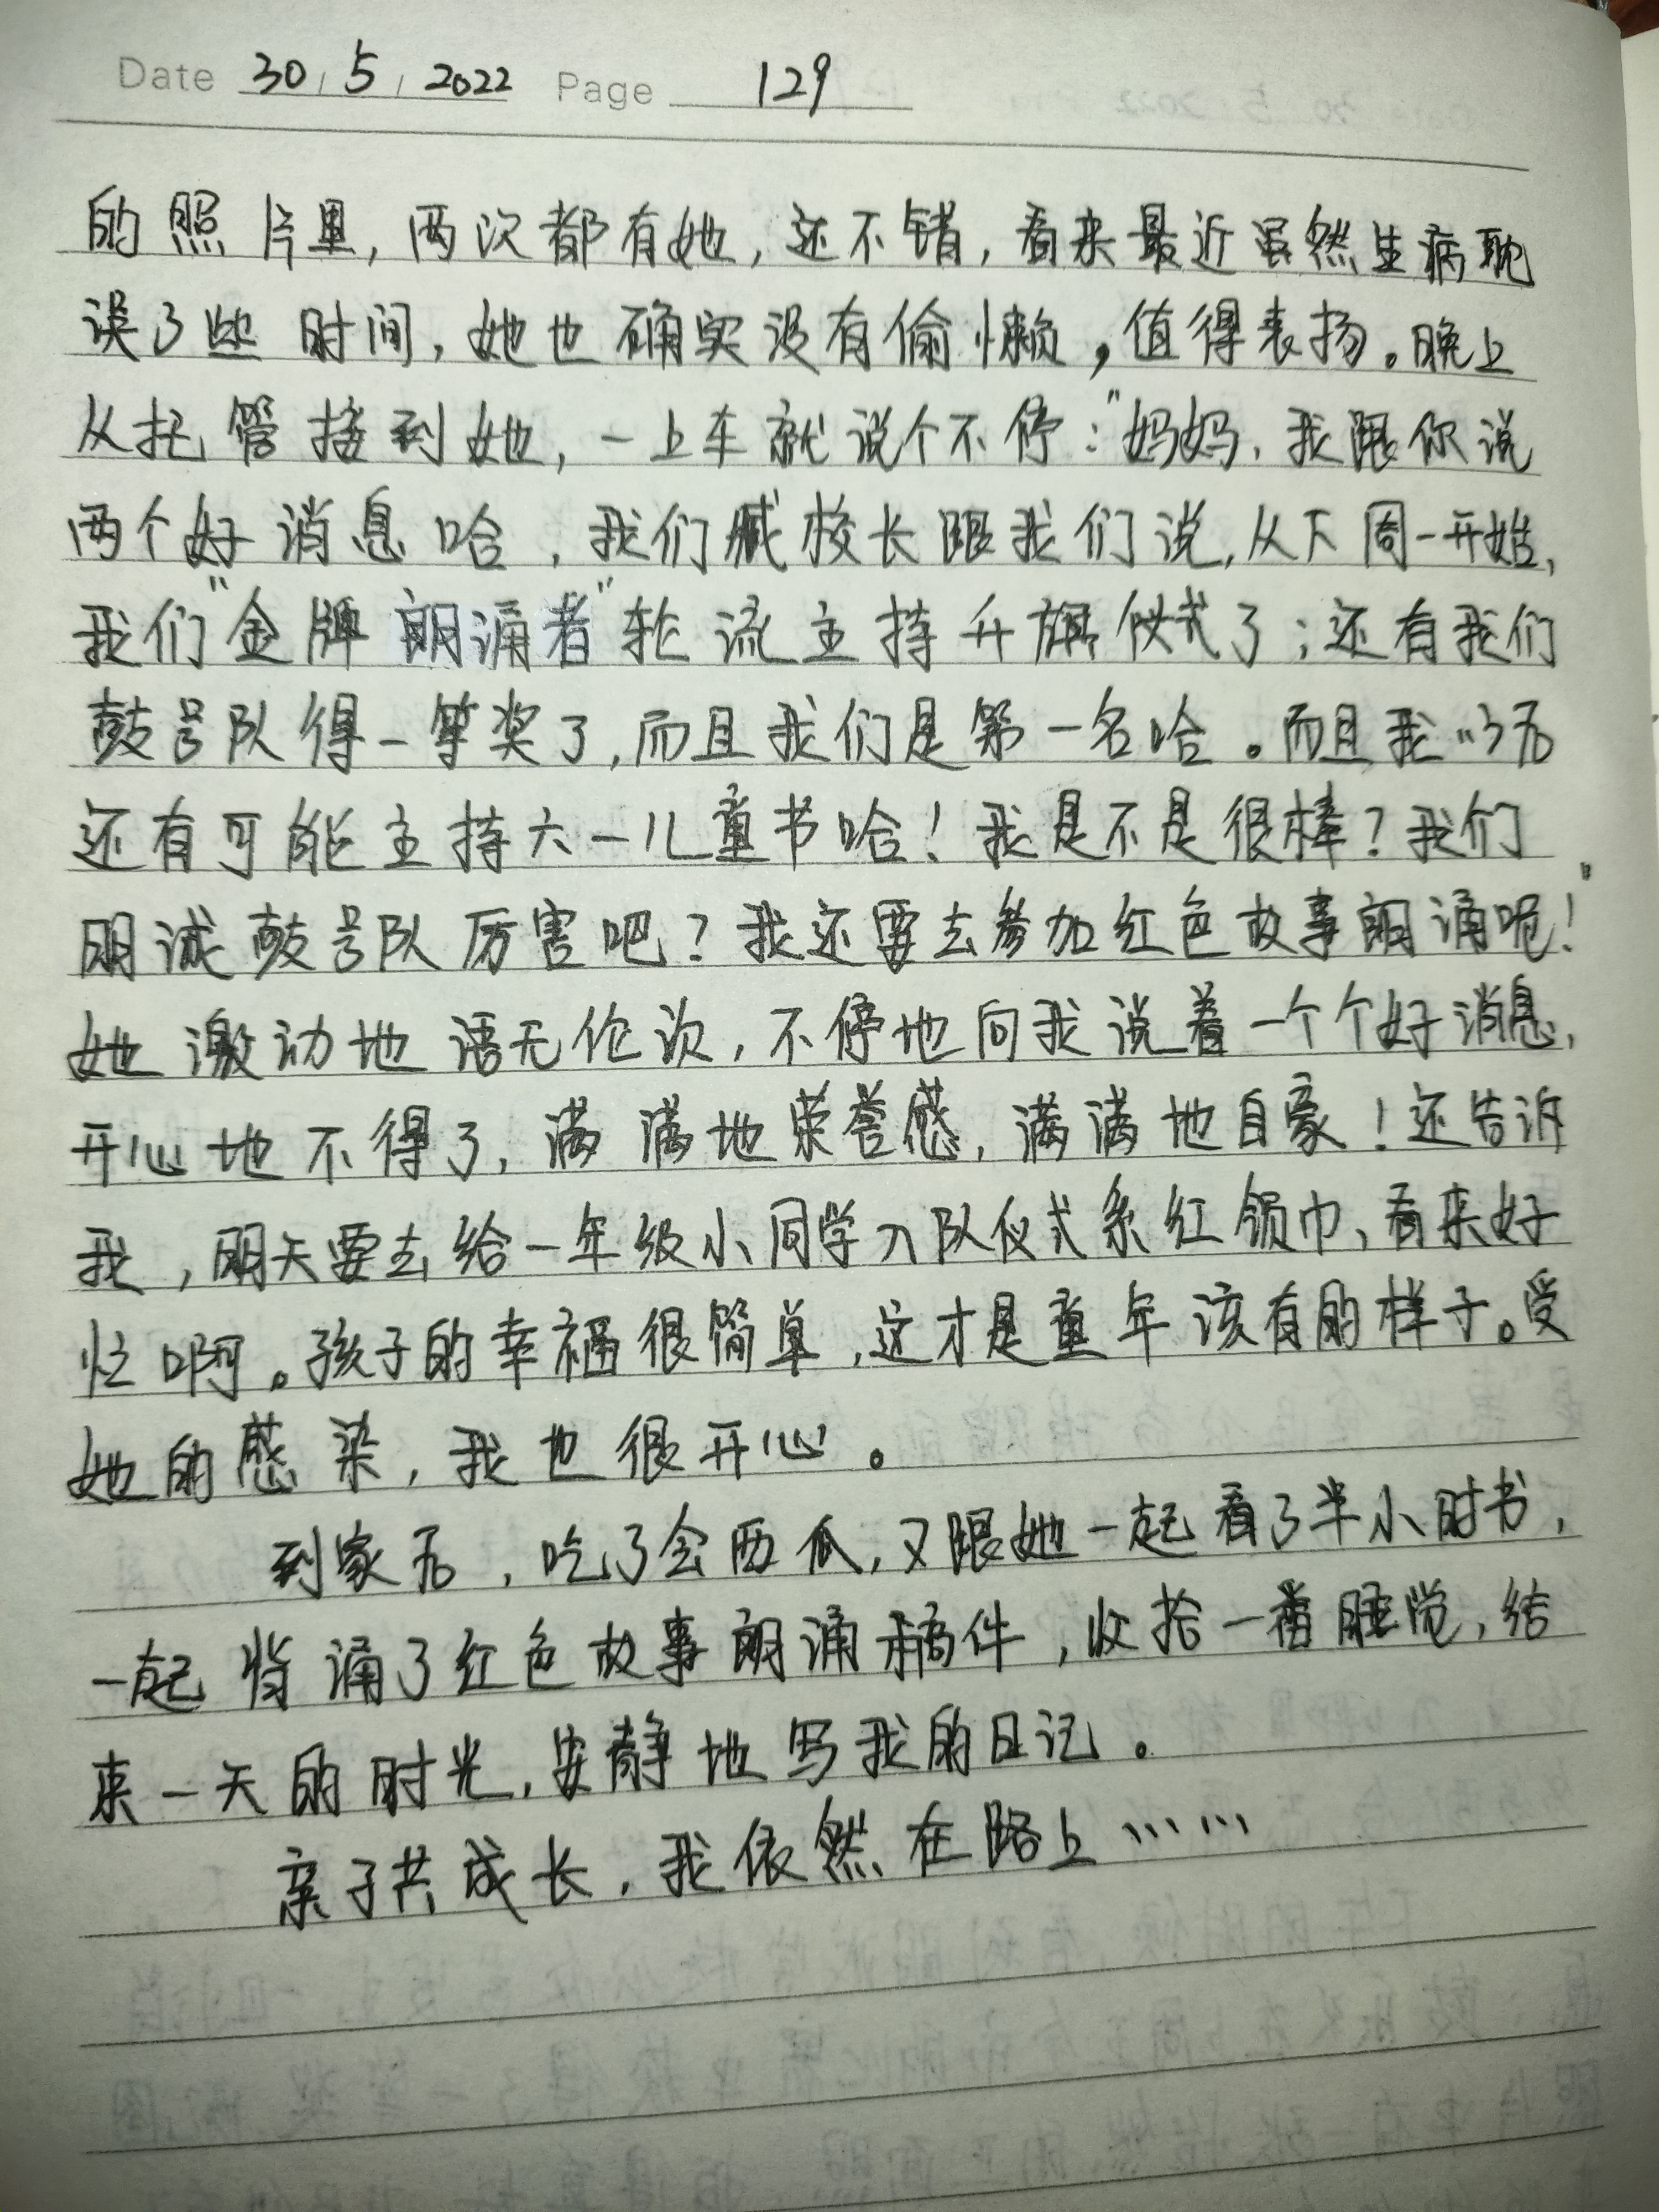 Date 30 / 5 / 2022 Page 129
的照片里,两次都有她,还不错,看来最近虽然生病耽
误了些时间,她也确实没有偷懒,值得表扬。晚上
从托管接到她,一上车就说个不停:"妈妈,我跟你说
两个好消息哈,我们臧校长跟我们说,从下周一开始,
我们"金牌朗诵者"轮流主持升旗仪式了;还有我们
鼓号队得一等奖了,而且我们是第一名哈。而且我
还有可能主持六一儿童节哈!我是不是很棒?我们
明诚鼓号队厉害吧?我还要去参加红色故事朗诵呢!"
她激动地语无伦次,不停地向我说着一个个好消息,
开心地不得了,满满地荣誉感,满满地自豪!还告诉
我,明天要去给一年级小同学入队仪式系红领巾,看来好
忙啊。孩子的幸福很简单,这才是童年该有的样子。受
她的感染,我也很开心。
到家后,吃了会西瓜,又跟她一起看了半小时书,
一起背诵了红色故事朗诵稿件,收拾一番睡觉,结
束一天的时光,安静地写我的日记。
亲子共成长,我依然在路上……